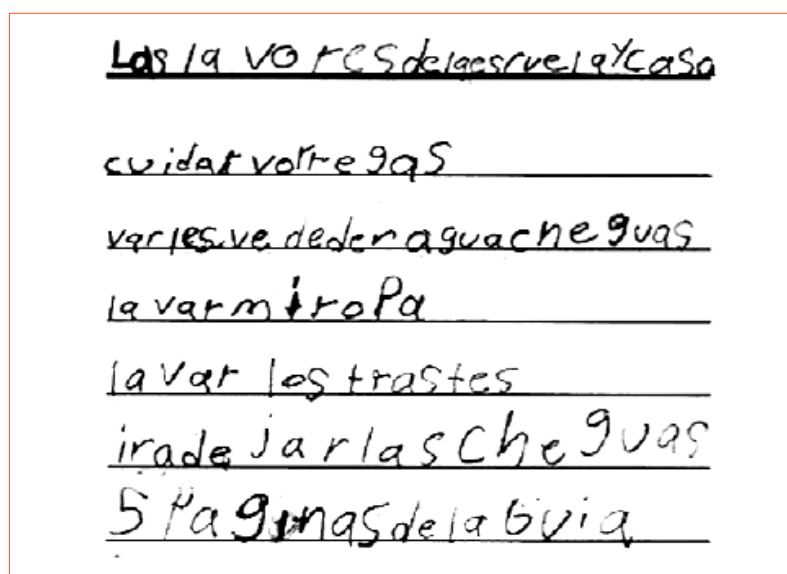 Las la vores delaescuelaYcasa
cuidar vorregas
varles.ve deder aguacheguas
la var miropa
lavar los trastes
irade jarlascheguas
5 Paginasdela Guia